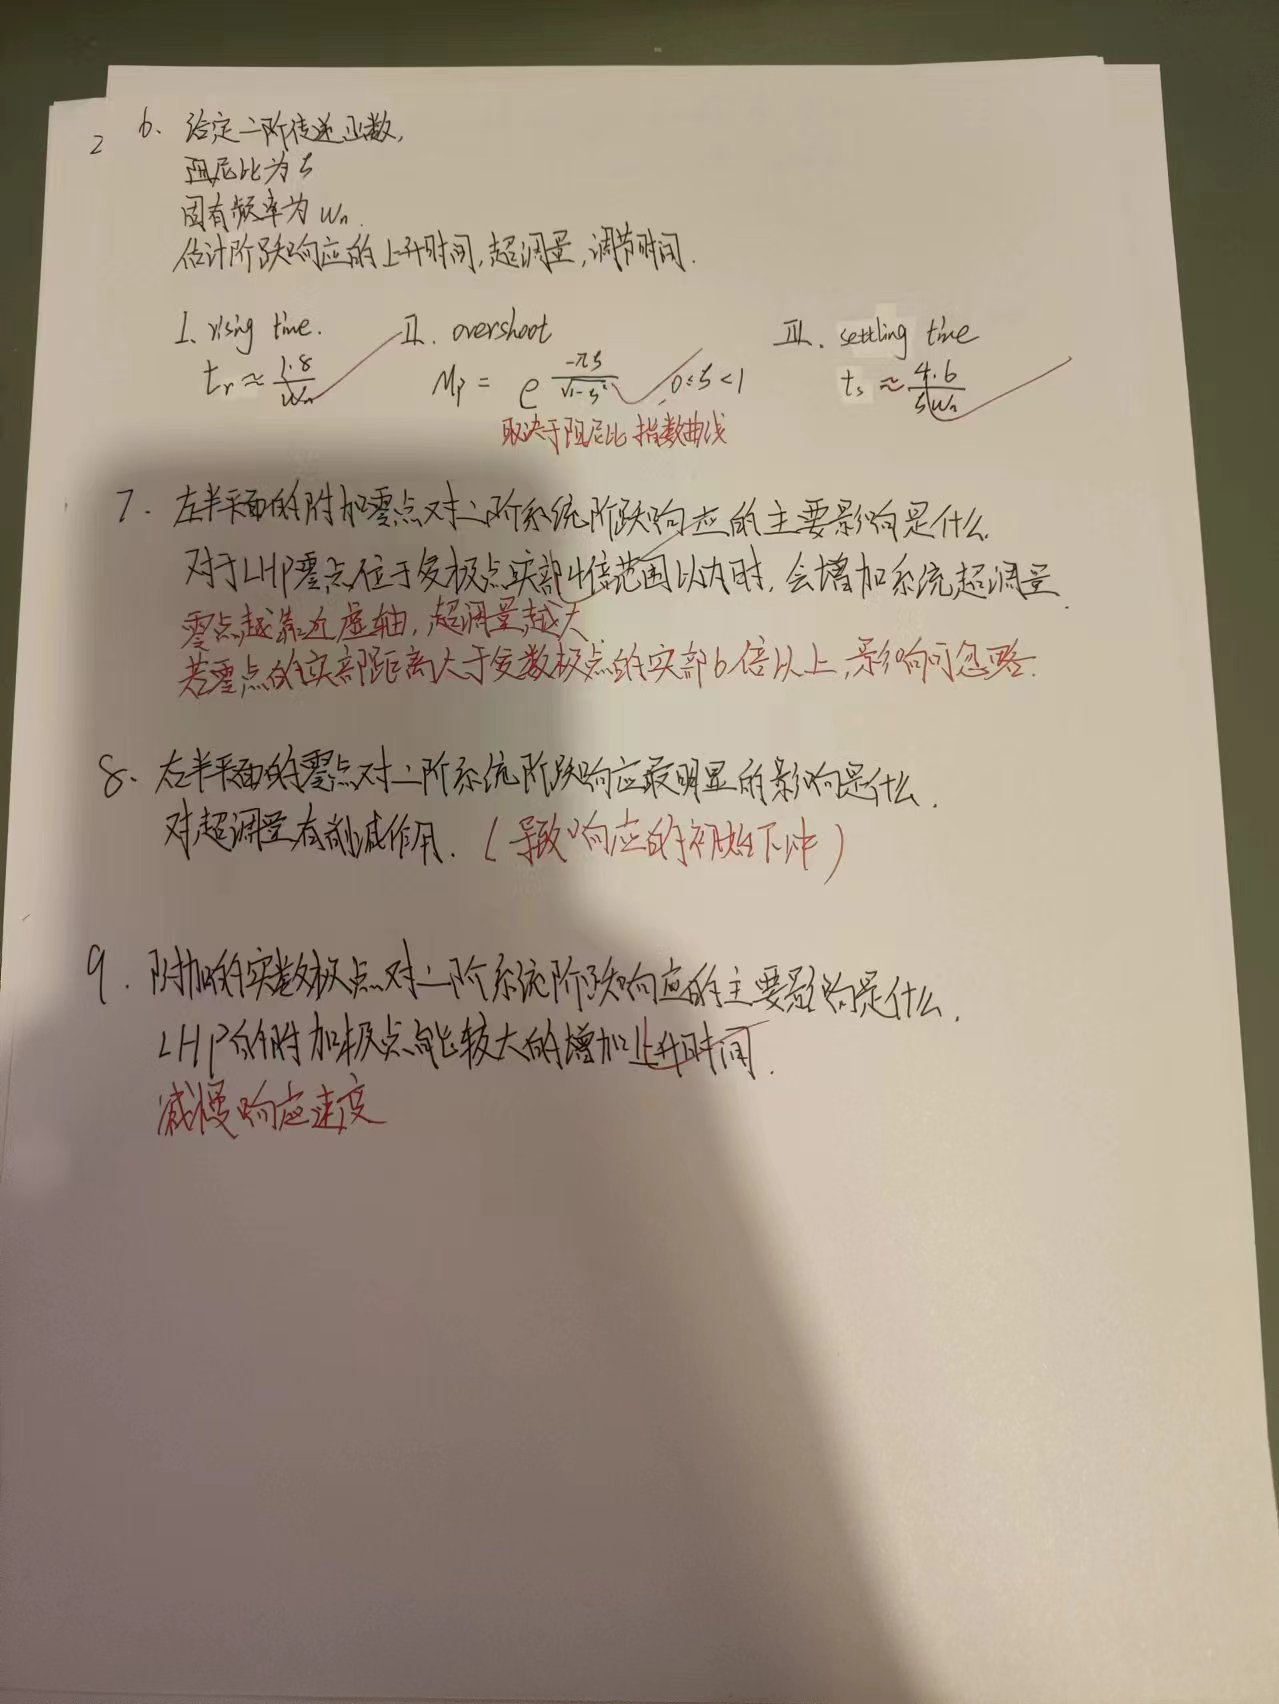 2
6、给定二阶传递函数,
阻尼比为ζ
固有频率为ωn.
估计阶跃响应的上升时间,超调量,调节时间.
I. rising time. II. overshoot III. settling time
tr ≈ 1.8/ωn Mp = e^(-πζ/√(1-ζ²)) 0≤ζ<1 ts ≈ 4.6/ζωn
取决于阻尼比 指数曲线
7. 左半平面的附加零点对二阶系统阶跃响应的主要影响是什么.
对于LHP零点位于复极点实部4倍范围以内时,会增加系统超调量.
零点越靠近虚轴,超调量越大
若零点的实部距离大于复数极点的实部6倍以上,影响可忽略.
8、左半平面的零点对二阶系统阶跃响应最明显的影响是什么.
对超调量有削减作用.(导致响应的初始下冲)
9. 附加的实数极点对二阶系统阶跃响应的主要影响是什么.
LHP的附加极点能较大的增加上升时间.
减慢响应速度